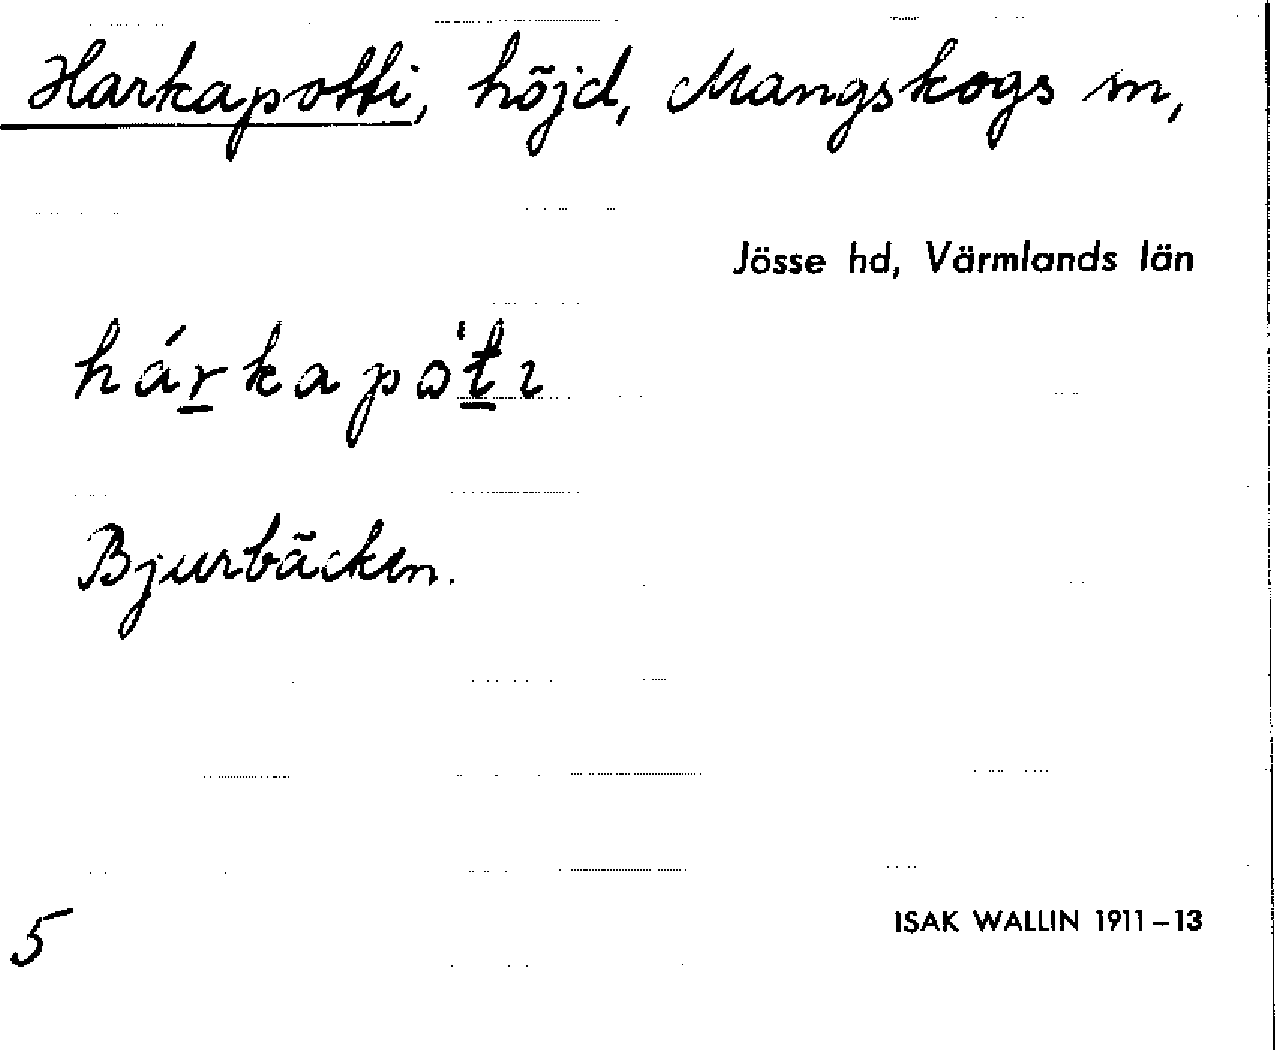 Harkapotti, höjd, Mangskogs sn,
Jösse hd, Värmlands län
hárkapɷ̀tı
Bjurbäcken.
5
ISAK WALLIN 1911–13